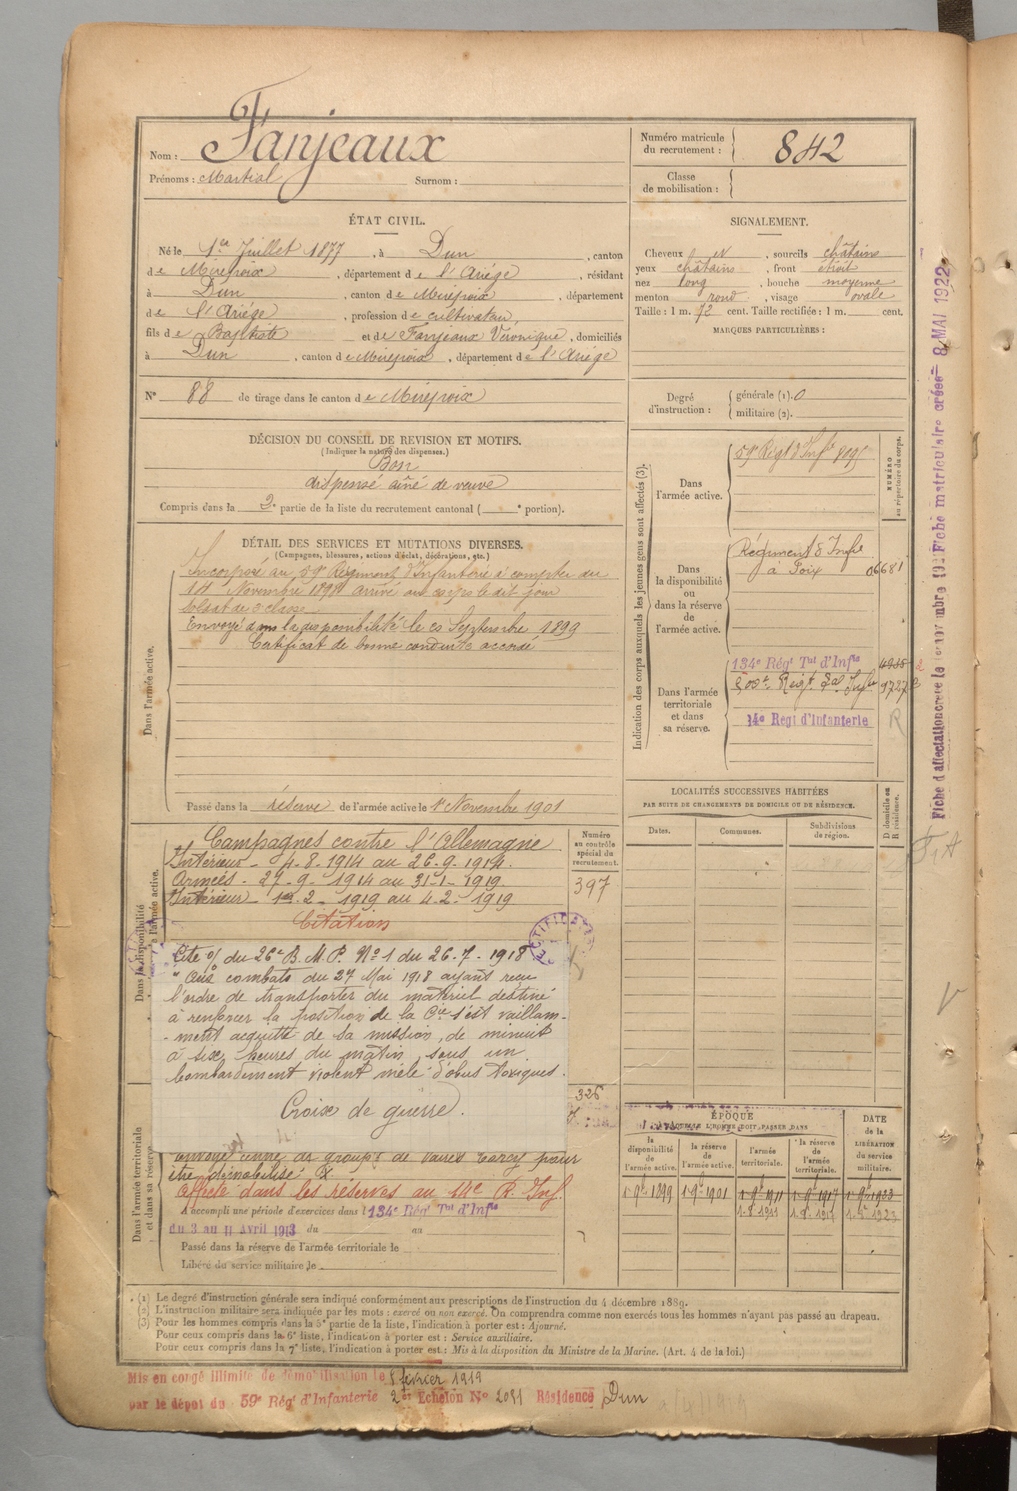 Nom : Fanjeaux
Prénoms : Martial Surnom :
Numéro matricule
du recrutement : 842
Classe
de mobilisation :
ÉTAT CIVIL.
Né le 1er Juillet 1877, à Dun, canton
de Mirepoix, département de l'Ariége, résidant
à Dun, canton de Mirepoix, département
de l'Ariége, profession de cultivateur,
fils de Baptiste et de Fanjeaux Véronique, domiciliés
à Dun, canton de Mirepoix, département de l'Ariége
N° 88 de tirage dans le canton de Mirepoix
SIGNALEMENT.
Cheveux et, sourcils châtains
yeux châtains, front étroit
nez long, bouche moyenne
menton rond, visage ovale
Taille : 1 m. 72 cent. Taille rectifiée : 1 m. cent.
MARQUES PARTICULIÈRES :
Degré
d'instruction :
générale (1). 0
militaire (2).
DÉCISION DU CONSEIL DE REVISION ET MOTIFS.
(Indiquer la nature des dispenses.)
Bon
dispensé aîné de veuve
Compris dans la 2e partie de la liste du recrutement cantonal ( e portion).
DÉTAIL DES SERVICES ET MUTATIONS DIVERSES.
(Campagnes, blessures, actions d'éclat, décorations, etc.)
Dans l'armée active.
Incorporé au 59e Régiment d'Infanterie à compter du
14 Novembre 1898 arrivé au corps le dit jour
Soldat de 2e classe
Envoyé dans la disponibilité le 20 Septembre 1899
Certificat de bonne conduite accordé
Passé dans la réserve de l'armée active le 1er Novembre 1901
Indication des corps auxquels les jeunes gens sont affectés (3).
NUMÉRO
au répertoire du corps.
Dans
l'armée active.
59e Régt d'Infie
Dans
la disponibilité
ou
dans la réserve
de
l'armée active.
Régiment d'Infie
à Foix 06681
Dans l'armée
territoriale
et dans
sa réserve.
134e Régt Tal d'Infie
Régt Infie 9727
14e Régt d'Infanterie R
LOCALITÉS SUCCESSIVES HABITÉES
PAR SUITE DE CHANGEMENTS DE DOMICILE OU DE RÉSIDENCE.
Dates. Communes. Subdivisions
de région.
D. domicile ou
R. résidence.
Dans la disponibilité
de l'armée active.
Numéro
au contrôle
spécial du
recrutement.
397
Campagnes contre l'Allemagne
Intérieur - 4-8-1914 au 26-9-1914.
Armées - 27-9-1914 au 31-1-1919
Intérieur - 1er-2-1919 au 4-2-1919
Citation
RECTIFICATION
Cité o/ du 26e B. M. P. No 1 du 26-7-1918
" Aux combats du 27 Mai 1918 ayant reçu
l'ordre de transporter du matériel destiné
à renforcer la position de la Cie s'est vaillam-
-ment acquitté de sa mission, de minuit
à six heures du matin, sous un
bombardement violent mêlé d'obus toxiques.
Croix de guerre.
326
Dans l'armée territoriale
et dans sa réserve
Envoyé de groupt de Vaires Torcy pour
être démobilisé
Affecté dans les réserves au 14e R. Inf.
A accompli une période d'exercices dans l 134e Régt Tal d'Infie
du 3 au 11 Avril 1913 du au
Passé dans la réserve de l'armée territoriale le
Libéré du service militaire le
ÉPOQUE
À LAQUELLE L'HOMME DOIT PASSER DANS
la
disponibilité
de
l'armée active.
la réserve
de
l'armée active.
l'armée
territoriale.
la réserve
de
l'armée
territoriale.
DATE
de la
LIBÉRATION
du
service
militaire.
1-9e 1899 1-9e 1901 1-9e 1911 1-9e 1917 1-9e 1923
(1) Le degré d'instruction générale sera indiqué conformément aux prescriptions de l'instruction du 4 décembre 1889.
(2) L'instruction militaire sera indiquée par les mots : exercé ou non exercé. On comprendra comme non exercés tous les hommes n'ayant pas passé au drapeau.
(3) Pour les hommes compris dans la 5e partie de la liste, l'indication à porter est : Ajourné.
Pour ceux compris dans la 6e liste, l'indication à porter est : Service auxiliaire.
Pour ceux compris dans la 7e liste, l'indication à porter est : Mis à la disposition du Ministre de la Marine. (Art. 4 de la loi.)
Mis en congé illimité de démobilisation le 5 février 1919
par le dépôt du 59e Régt d'Infanterie 2e Echelon No 2091 Résidence Dun
8 MAI 1922
Fiche matriculaire créée
Fiche d'affectation créée le